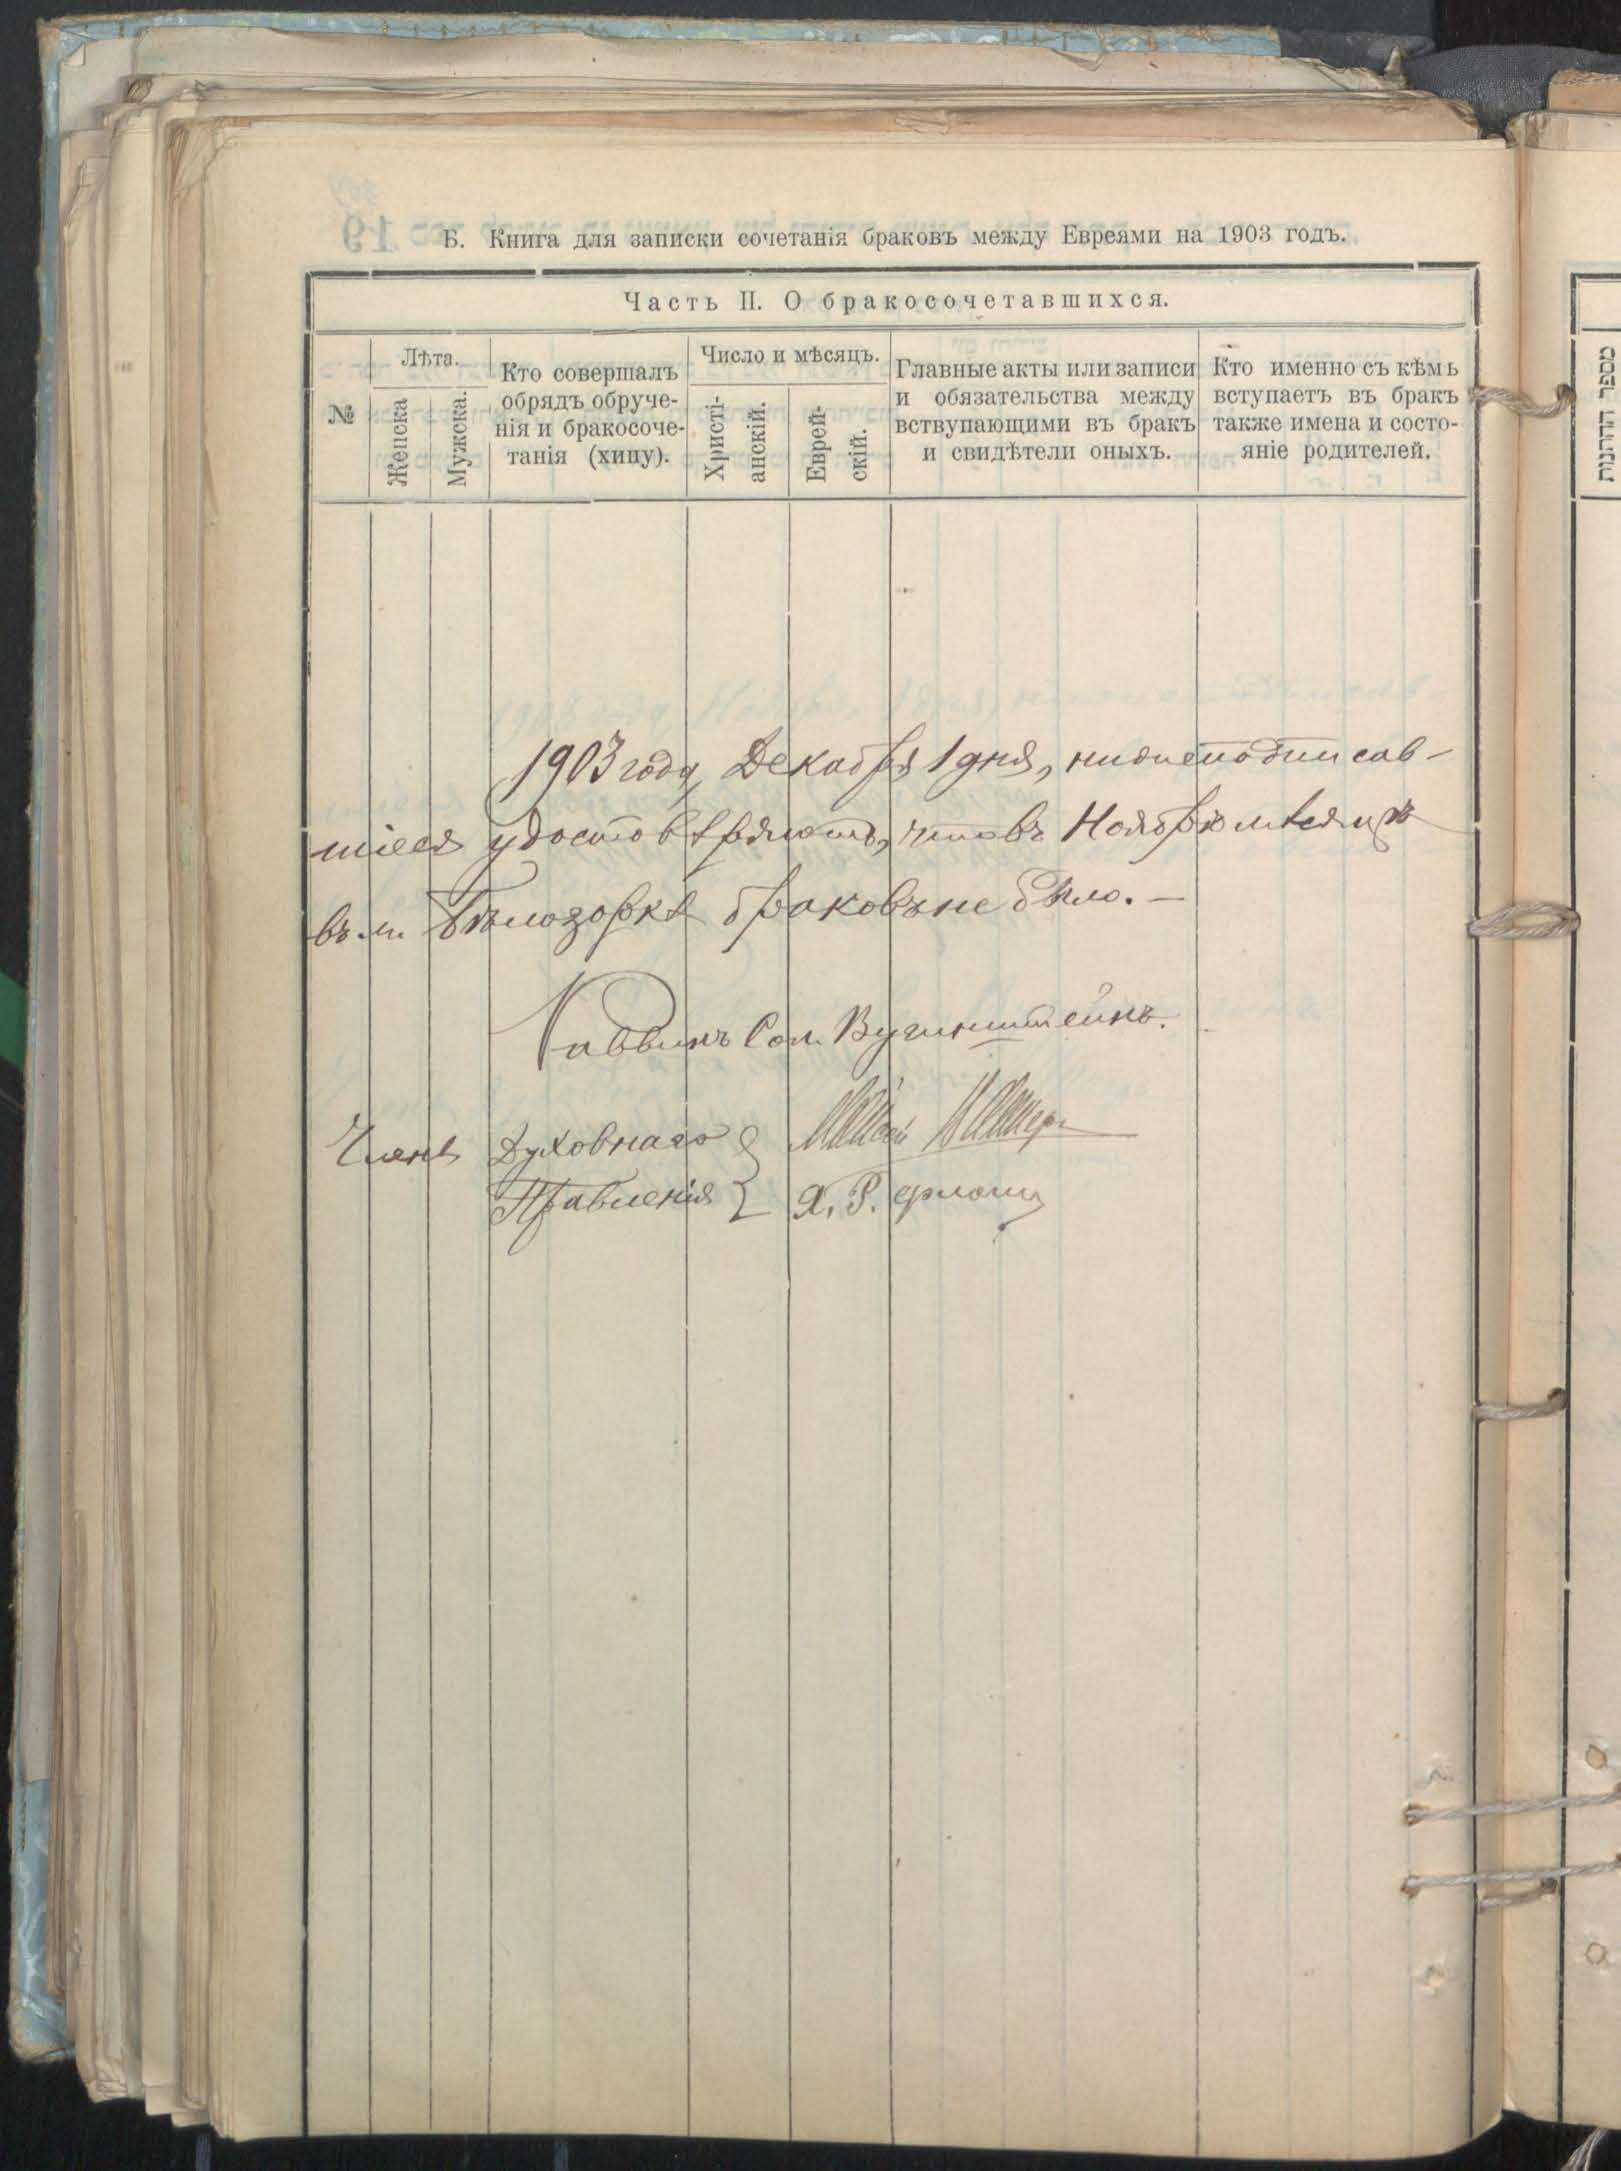 Б. Книга для записки сочетанія браковъ между Евреями на 1903 годъ.
Часть II. О бракосочетавшихся.
№
Лѣта.
Женска
Мужска.
Кто совершалъ
обрядъ обруче-
нія и бракосоче-
танія (хипу).
Число и мѣсяцъ.
Христі-
анскій.
Еврей-
скій.
Главные акты или записи
и обязательства между
вствупающими въ бракъ
и свидѣтели оныхъ.
Кто именно съ кѣмъ
вступаетъ въ бракъ
также имена и состо-
яніе родителей.
1903 года, Декабря 1 дня, нижеподписав-
шіеся удостовѣряютъ, что въ Ноябрѣ мѣсяцѣ
въ м. Бѣлозоркѣ браковъ не было. —
Раввинъ Сол.
Члены Духовнаго
Правленія
Х. Р.
מספר החתונות